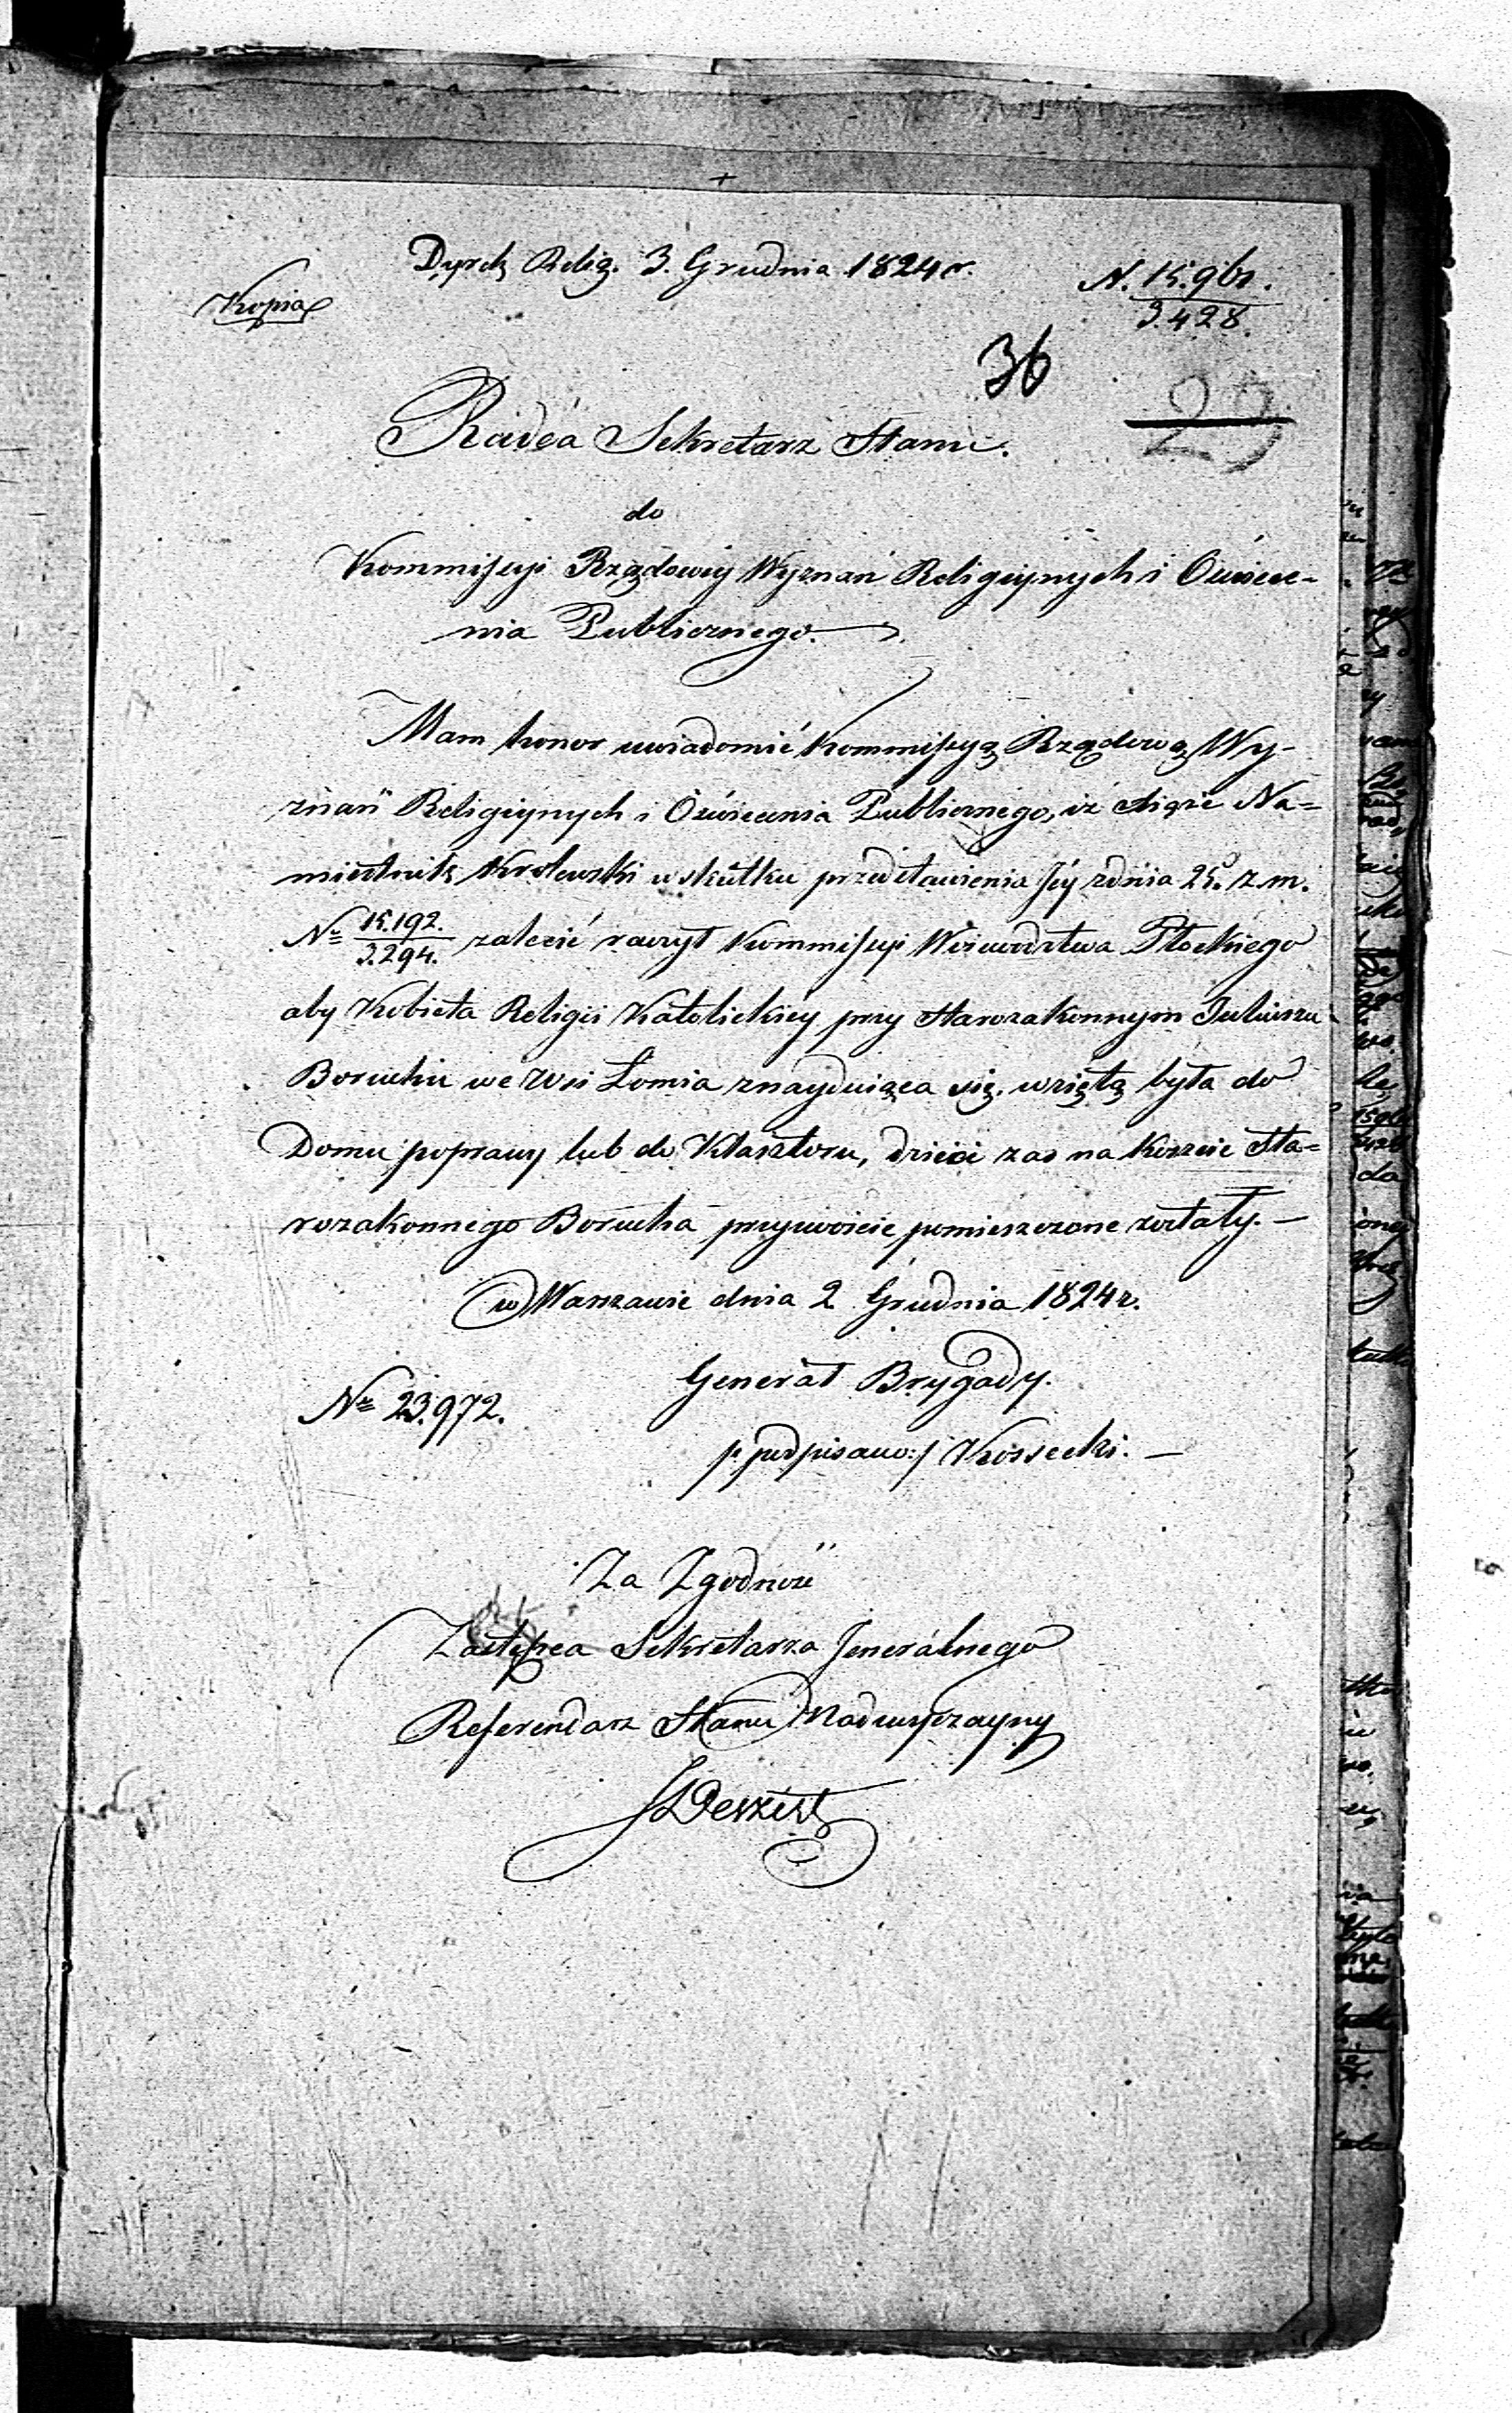 Dyrek Relig. 3. Grudnia 1824 r.
N. 15.961.
3.428.
Kopia
36
29
Radca Sekretarz Stanu.
do
Kommissyi Rządowéy Wyznań Religiynych i Oświece-
nia Publicznego.
Mam honor uwiadomić Kommissyą Rządową Wy-
znań Religiynych i Oświecenia Publicznego, iż Xiąże Na=
miestnik Krolewski w skutku przedstawienia Jéy z dnia 25. z. m.
Nro 15.192. / 3.294. zalecić raczył Kommissyi Woiewodztwa Płockiego
aby Kobieta Religii Katolickiéy przy Starozakonnym Juliuszu
Boruchu we Wsi Łomia znayduiąca się, wziętą była do
Domu poprawy lub do Klasztoru, dzieci zas na koszcie Sta=
rozakonnego Borucha przyzwoicie pomieszczone zostały. —
w Warszawie dnia 2 Grudnia 1824 r.
Generał Brygady.
Nro 23.972.
/:podpisano:/ Kossecki. —
Za Zgodność
Zastępca Sekretarza Jeneralnego
Referendarz Stanu Nadwyczayny